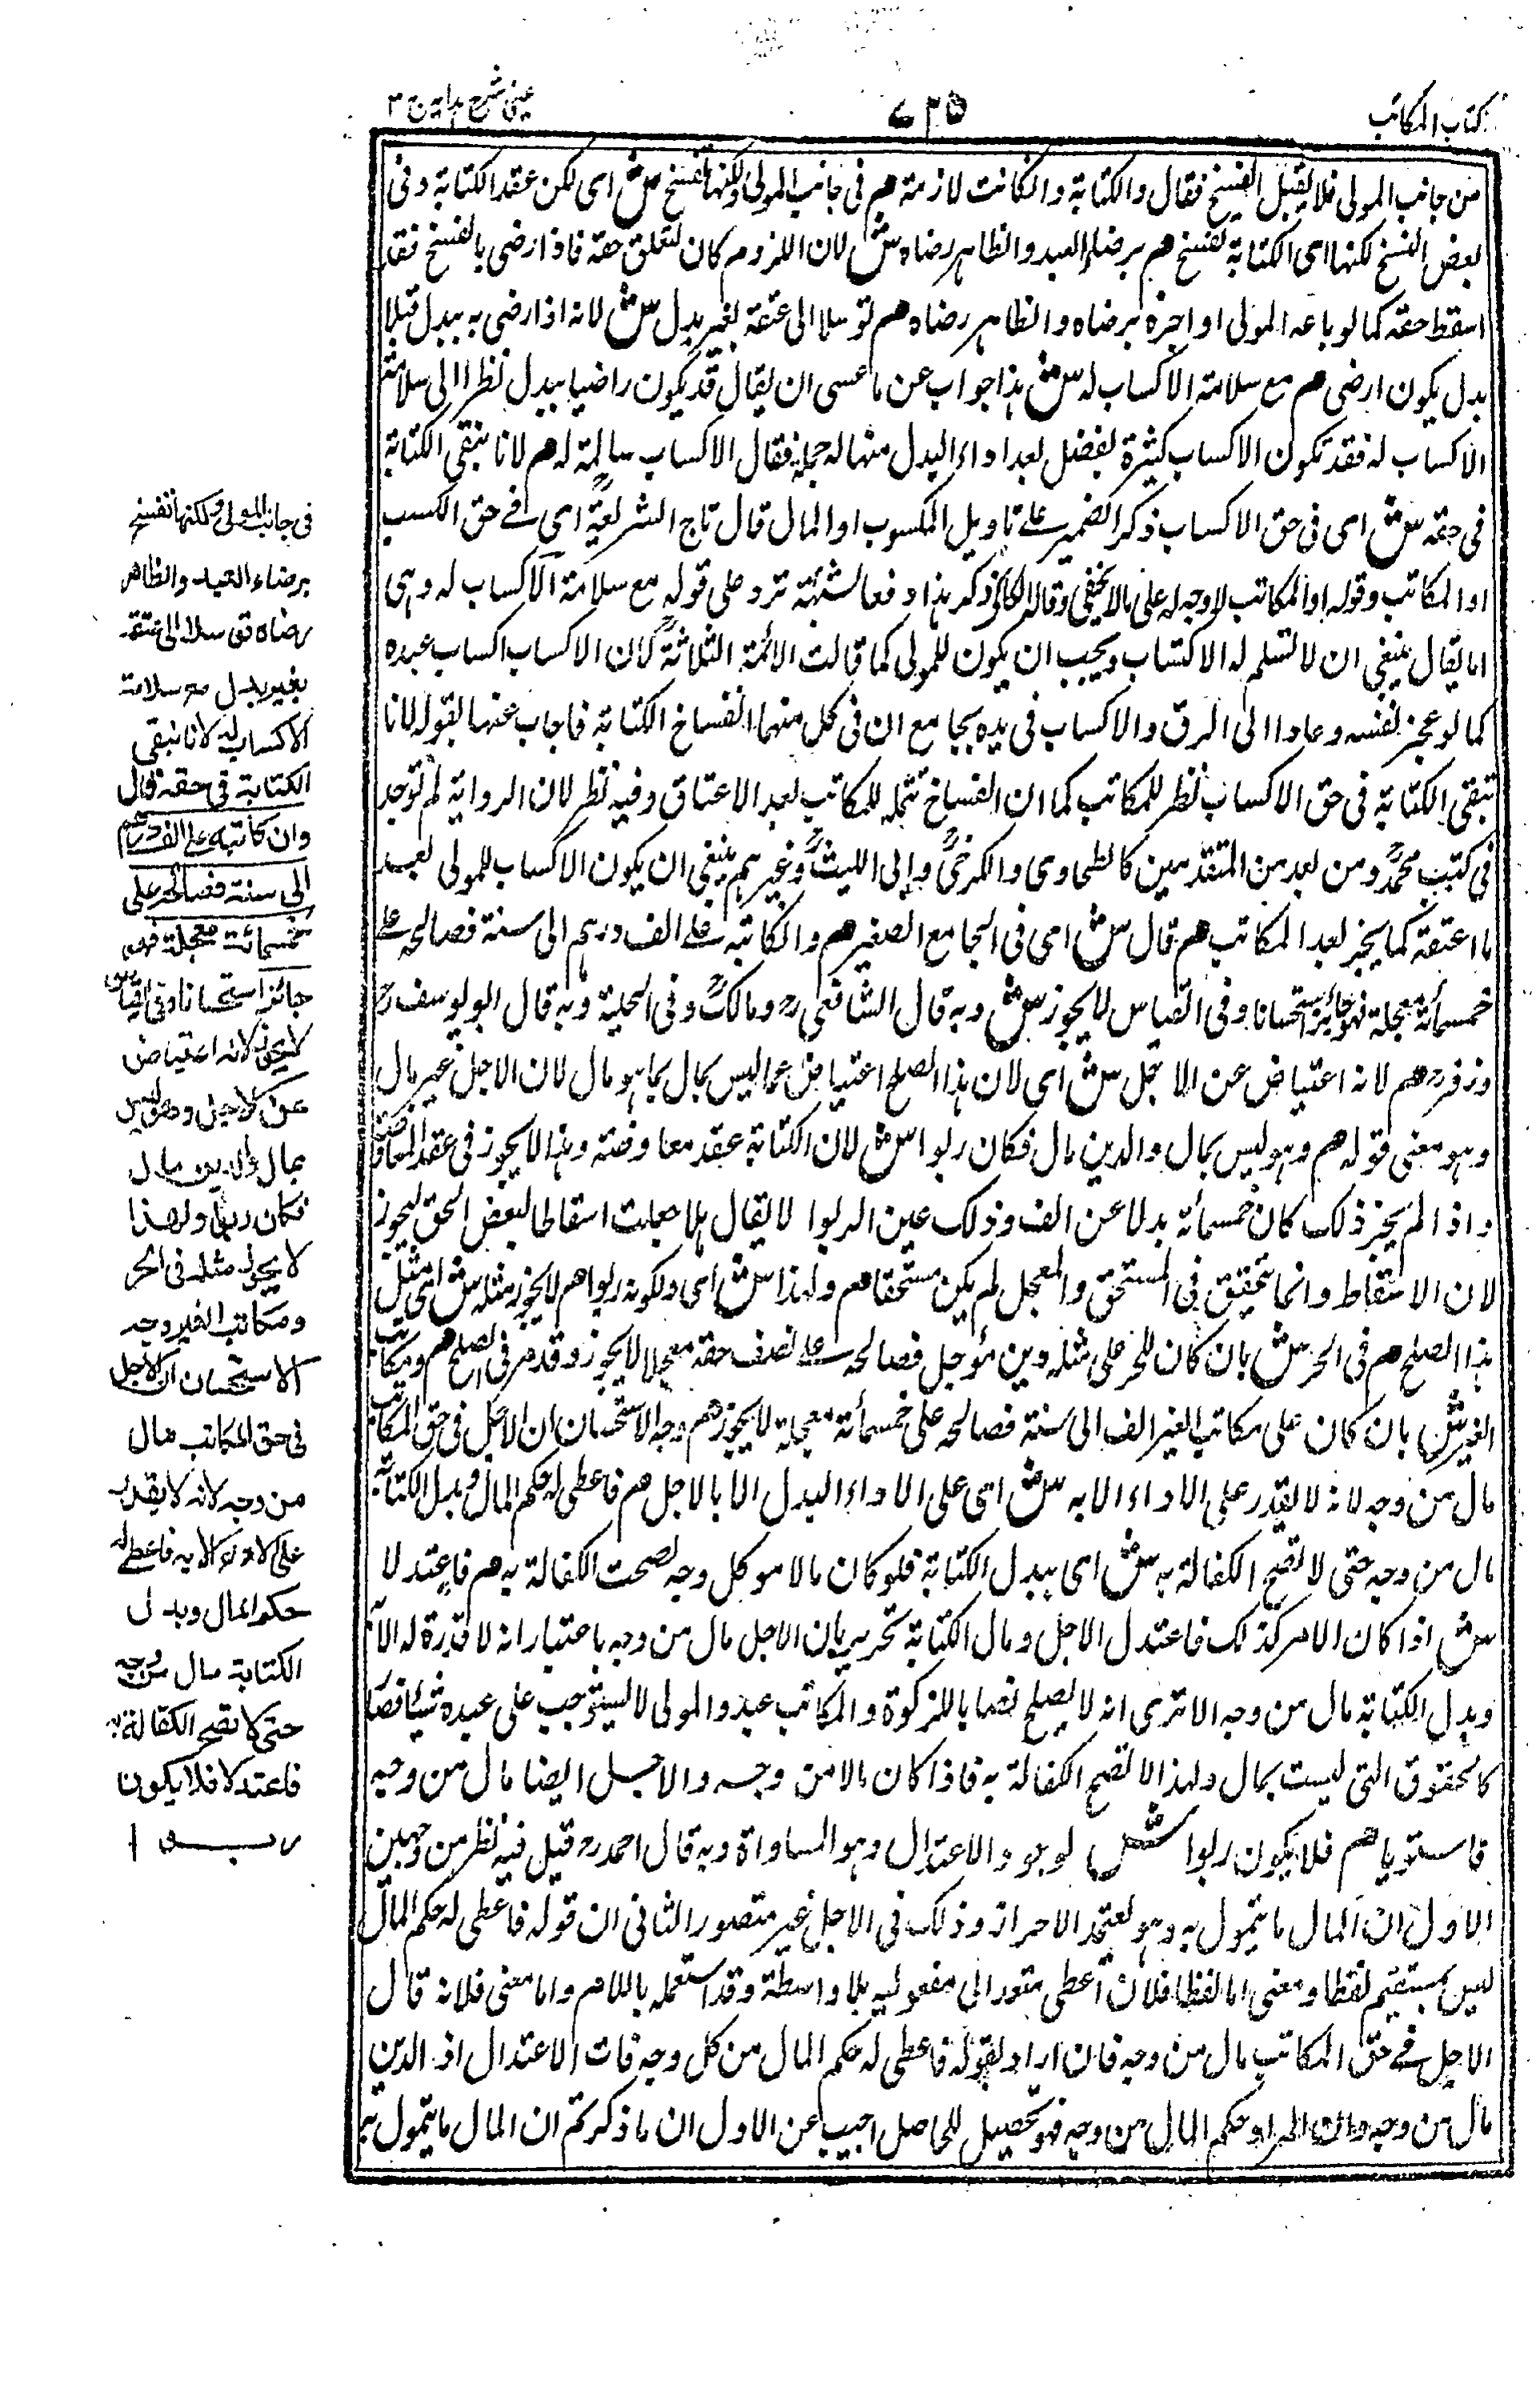 كتاب المكاتب
٧٣٥
عينى شرح هداية ج ٣
من جانب المولى فلا يقبل الفسخ فقال والكتابة وان كانت لازمة هم فى جانب المولى ولكنها تفسخ ش اى لكن عقد الكتابة وفى
بعض النسخ لكنها اى الكتابة تفسخ هم برضاء العبد والظاهر رضاه ش لان اللزوم كان لتعلق حقه فاذا رضى بالفسخ فقد
اسقط حقه كما لو باعه المولى او اجره برضاه والظاهر رضاه هم توسلا الى عتقه بغير بدل ش لانه اذا رضى به ببدل فبلا
بدل يكون ارضى هم مع سلامة الاكساب له ش هذا جواب عن ما عسى ان يقال قد يكون راضيا ببدل نظرا الى سلامة
الاكساب له فقد تكون الاكساب كثيرة يفضل بعد اداء البدل منها له جملة فقال الاكساب سالمة له هم لانا نبقى الكتابة
فى حقه ش اى فى حق الاكساب ذكر الضمير على تاويل المكسوب او المال قال تاج الشريعة اى فى حق الكسب
او المكاتب وقوله او المكاتب لا وجه له على ما لا يخفى وقال الكاكى ذكر هذا دفعا لشبهة ترد على قوله مع سلامة الاكساب له وهى
اما يقال ينبغى ان لا تسلم له الاكتساب ويجب ان يكون للمولى كما قالت الائمة الثلاثة لان الاكساب اكساب عبده
كما لو عجز نفسه وعادا الى الرق والاكساب فى يده بجامع ان فى كل منهما انفساخ الكتابة فاجاب عنها بقوله لانا
نبقى الكتابة فى حق الاكساب نظر للمكاتب كما ان انفساخ تثمله للمكاتب بعد الاعتاق وفيه نظر لان الرواية لم توجد
فى كتب محمد ومن بعد من المتقدمين كالطحاوى والكرخى وابى الليث وغيرهم ينبغى ان يكون الاكساب للمولى بعد
ما اعتقه كما يجز بعد المكاتب هم قال ش اى فى الجامع الصغير هم وان كاتبه على الف درهم الى سنة فصالحه على
خمسمائة معجلة فهو جائز استحسانا وفى القياس لا يجوز ش وبه قال الشافعى رح ومالك وفى الحلية وبه قال ابو يوسف رح
وزفر رح هم لانه اعتياض عن الاجل ش اى لان هذا الصلح اعتياض عما ليس بمال بما هو مال لان الاجل غير مال
وهو معنى قوله هم وهو ليس بمال والدين مال فكان ربوا ش لان الكتابة عقد معاوضة وهذا لا يجوز فى عقد المعاوضة
واذا لم يجز ذلك كان خمسمائة بدلا عن الف وذلك عين الربوا لا يقال هلا جعلت اسقاطا لبعض الحق ليجوز
لان الاسقاط وانما يتحقق فى المستحق والمعجل لم يكن مستحقا هم ولهذا ش اى ولكونه ربوا هم لا يجوز مثله ش اى مثل
هذا الصلح هم فى الحر ش بان كان للحر على مثله دين مؤجل فصالحه على نصف حقه معجلا لا يجوز وقد مر فى الصلح هم ومكاتب
الغير ش بان كان على مكاتب الغير الف الى سنة فصالحه على خمسمائة معجلة لا يجوز هم وجه الاستحسان ان الاجل فى حق المكاتب
مال من وجه لانه لا يقدر على الاداء الا به ش اى على الاداء البدل الا بالاجل هم فاعطى له حكم المال وبدل الكتابة
مال من وجه حتى لا تصح الكفالة به ش اى ببدل الكتابة فلو كان مالا مو كل وجه لصحت الكفالة به هم فاعتدلا
ش اذا كان الامر كذلك فاعتدل الاجل ومال الكتابة تحريره بان الاجل مال من وجه باعتبار انه لا قدرة له الا به
وبدل الكتابة مال من وجه الا ترى انه لا يصلح نصابا للزكوة والمكاتب عبد والمولى لا يستوجب على عبده شيئا فصار
كالحقوق التى ليست بمال ولهذا لا تصح الكفالة به فاذا كان مالا من وجه والاجل ايضا مال من وجه
فاستويا هم فلا يكون ربوا ش لوجود الاعتدال وهو المساواة وبه قال احمد رح قيل فيه نظر من وجهين
الاول ان المال ما يتمول به وهو يعتمد الاحراز وذلك فى الاجل غير متصور الثانى ان قوله فاعطى له حكم المال
ليس بمستقيم لفظا ومعنى اما لفظا فلان اعطى متعد الى مفعوليه بلا واسطة وقد استعمله باللام واما معنى فلانه قال
الاجل فى حق المكاتب مال من وجه فان اراد بقوله فاعطى له حكم المال من كل وجه فات الاعتدال اذ الدين
مال من وجه وان المراد حكم المال من وجه فهو تحصيل للحاصل اجيب عن الاول ان ما ذكرتم ان المال ما يتمول به
فى جانب المولى ولكنها تفسخ
برضاء العبد والظاهر
رضاه توسلا الى عتقه
بغير بدل مع سلامة
الاكساب له لانا نبقى
الكتابة فى حقه قال
وان كاتبه على الف درهم
الى سنة فصالحه على
خمسمائة معجلة فهو
جائز استحسانا وفى القياس
لا يجوز لانه اعتياض
عن الاجل وهو ليس
بمال والدين مال
فكان ربوا ولهذا
لا يجوز مثله فى الحر
ومكاتب الغير وجه
الاستحسان ان الاجل
فى حق المكاتب مال
من وجه لانه لا يقدر
على الاداء الا به فاعطى له
حكم المال وبدل
الكتابة مال من وجه
حتى لا تصح الكفالة به
فاعتدلا فلا يكون
ربوا